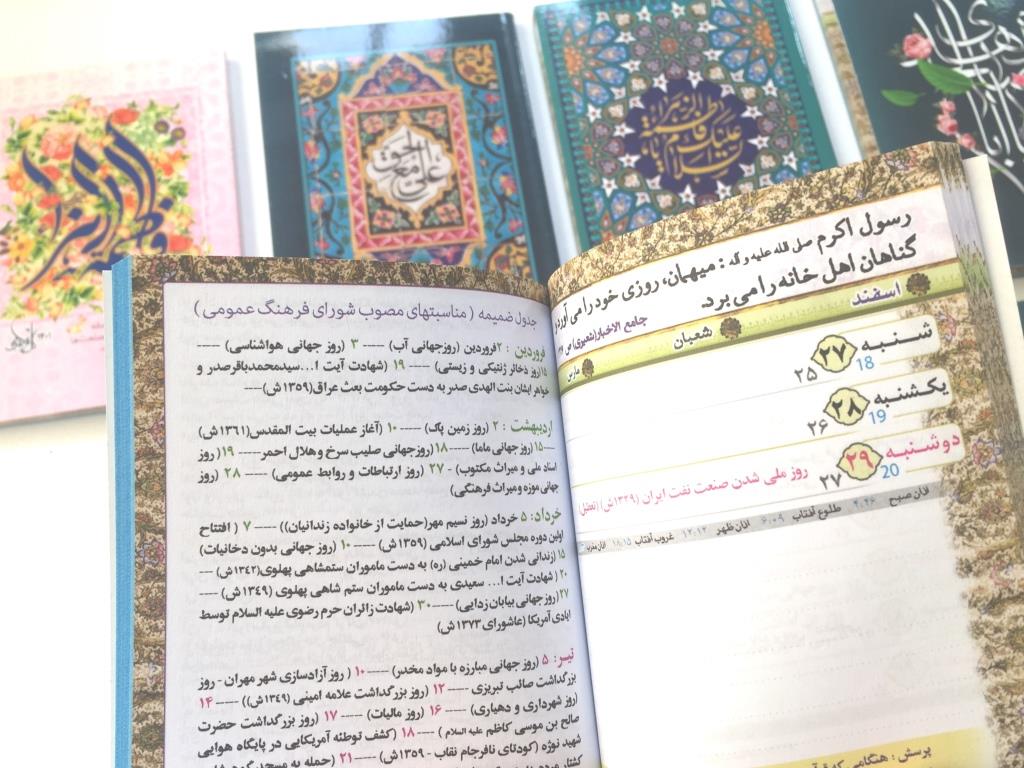 علی مع الحق
السلام علیک یا فاطمة الزهرا
فاطمة الزهرا
رسول اکرم صلی الله علیه و آله : میهمان، روزی خود را می آورد و
گناهان اهل خانه را می برد.
جامع الاخبار(شعیری) ص
اسفند
شعبان
مارس
شنبه ۲۷ 18 ۲۵
یکشنبه ۲۸ 19 ۲۶
دوشنبه ۲۹ 20 ۲۷
روز ملی شدن صنعت نفت ایران (۱۳۲۹ش) (تعطیل)
اذان صبح ۴:۴۶ طلوع آفتاب ۶:۰۹ اذان ظهر ۱۲:۱۲ غروب آفتاب ۱۸:۱۵ اذان مغرب
پرسش : هنگامی که
جدول ضمیمه ( مناسبتهای مصوب شورای فرهنگ عمومی )
فروردین : ۲فروردین (روزجهانی آب) ---- ۳ (روز جهانی هواشناسی) ----
۱۵(روز ذخائر ژنتیکی و زیستی) ---- ۱۹ (شهادت آیت ا...سیدمحمدباقرصدر و
خواهر ایشان بنت الهدی صدر به دست حکومت بعث عراق(۱۳۵۹ش)----
اردیبهشت : ۲ (روز زمین پاک) ---- ۱۰ (آغاز عملیات بیت المقدس(۱۳۶۱ش)
----۱۵(روز جهانی ماما) ----۱۸(روزجهانی صلیب سرخ و هلال احمر ----۱۹( روز
اسناد ملی و میراث مکتوب) - ۲۷ (روز ارتباطات و روابط عمومی) ---- ۲۸ (روز
جهانی موزه و میراث فرهنگی)
خرداد: ۵ خرداد (روز نسیم مهر(حمایت از خانواده زندانیان)) ---- ۷ ( افتتاح
اولین دوره مجلس شورای اسلامی (۱۳۵۹ش) ---- ۱۰ (روز جهانی بدون دخانیات)
۱۵ (زندانی شدن امام خمینی (ره) به دست ماموران ستمشاهی پهلوی(۱۳۴۲ش) ----
۲۰ ( شهادت آیت ا... سعیدی به دست ماموران ستم شاهی پهلوی (۱۳۴۹ش) ----
۲۷(روز جهانی بیابان زدایی) ----۳۰ (شهادت زائران حرم رضوی علیه السلام توسط
ایادی آمریکا (عاشورای ۱۳۷۳ش)
تیر: ۵ (روز جهانی مبارزه با مواد مخدر) ---- ۱۰ ( روز آزادسازی شهر مهران - روز
بزرگداشت صائب تبریزی ---- ۱۲ (روز بزرگداشت علامه امینی (۱۳۴۹ش)) ---- ۱۴
(روز شهرداری و دهیاری) ---- ۱۶ (روز مالیات) ---- ۱۷ (روز بزرگداشت حضرت
صالح بن موسی کاظم علیه السلام ) ---- ۱۸ (کشف توطئه آمریکایی در پایگاه هوایی
شهید نوژه (کودتای نافرجام نقاب - ۱۳۵۹ش) ---- ۲۱ (حمله به مسجد گوهرشاد